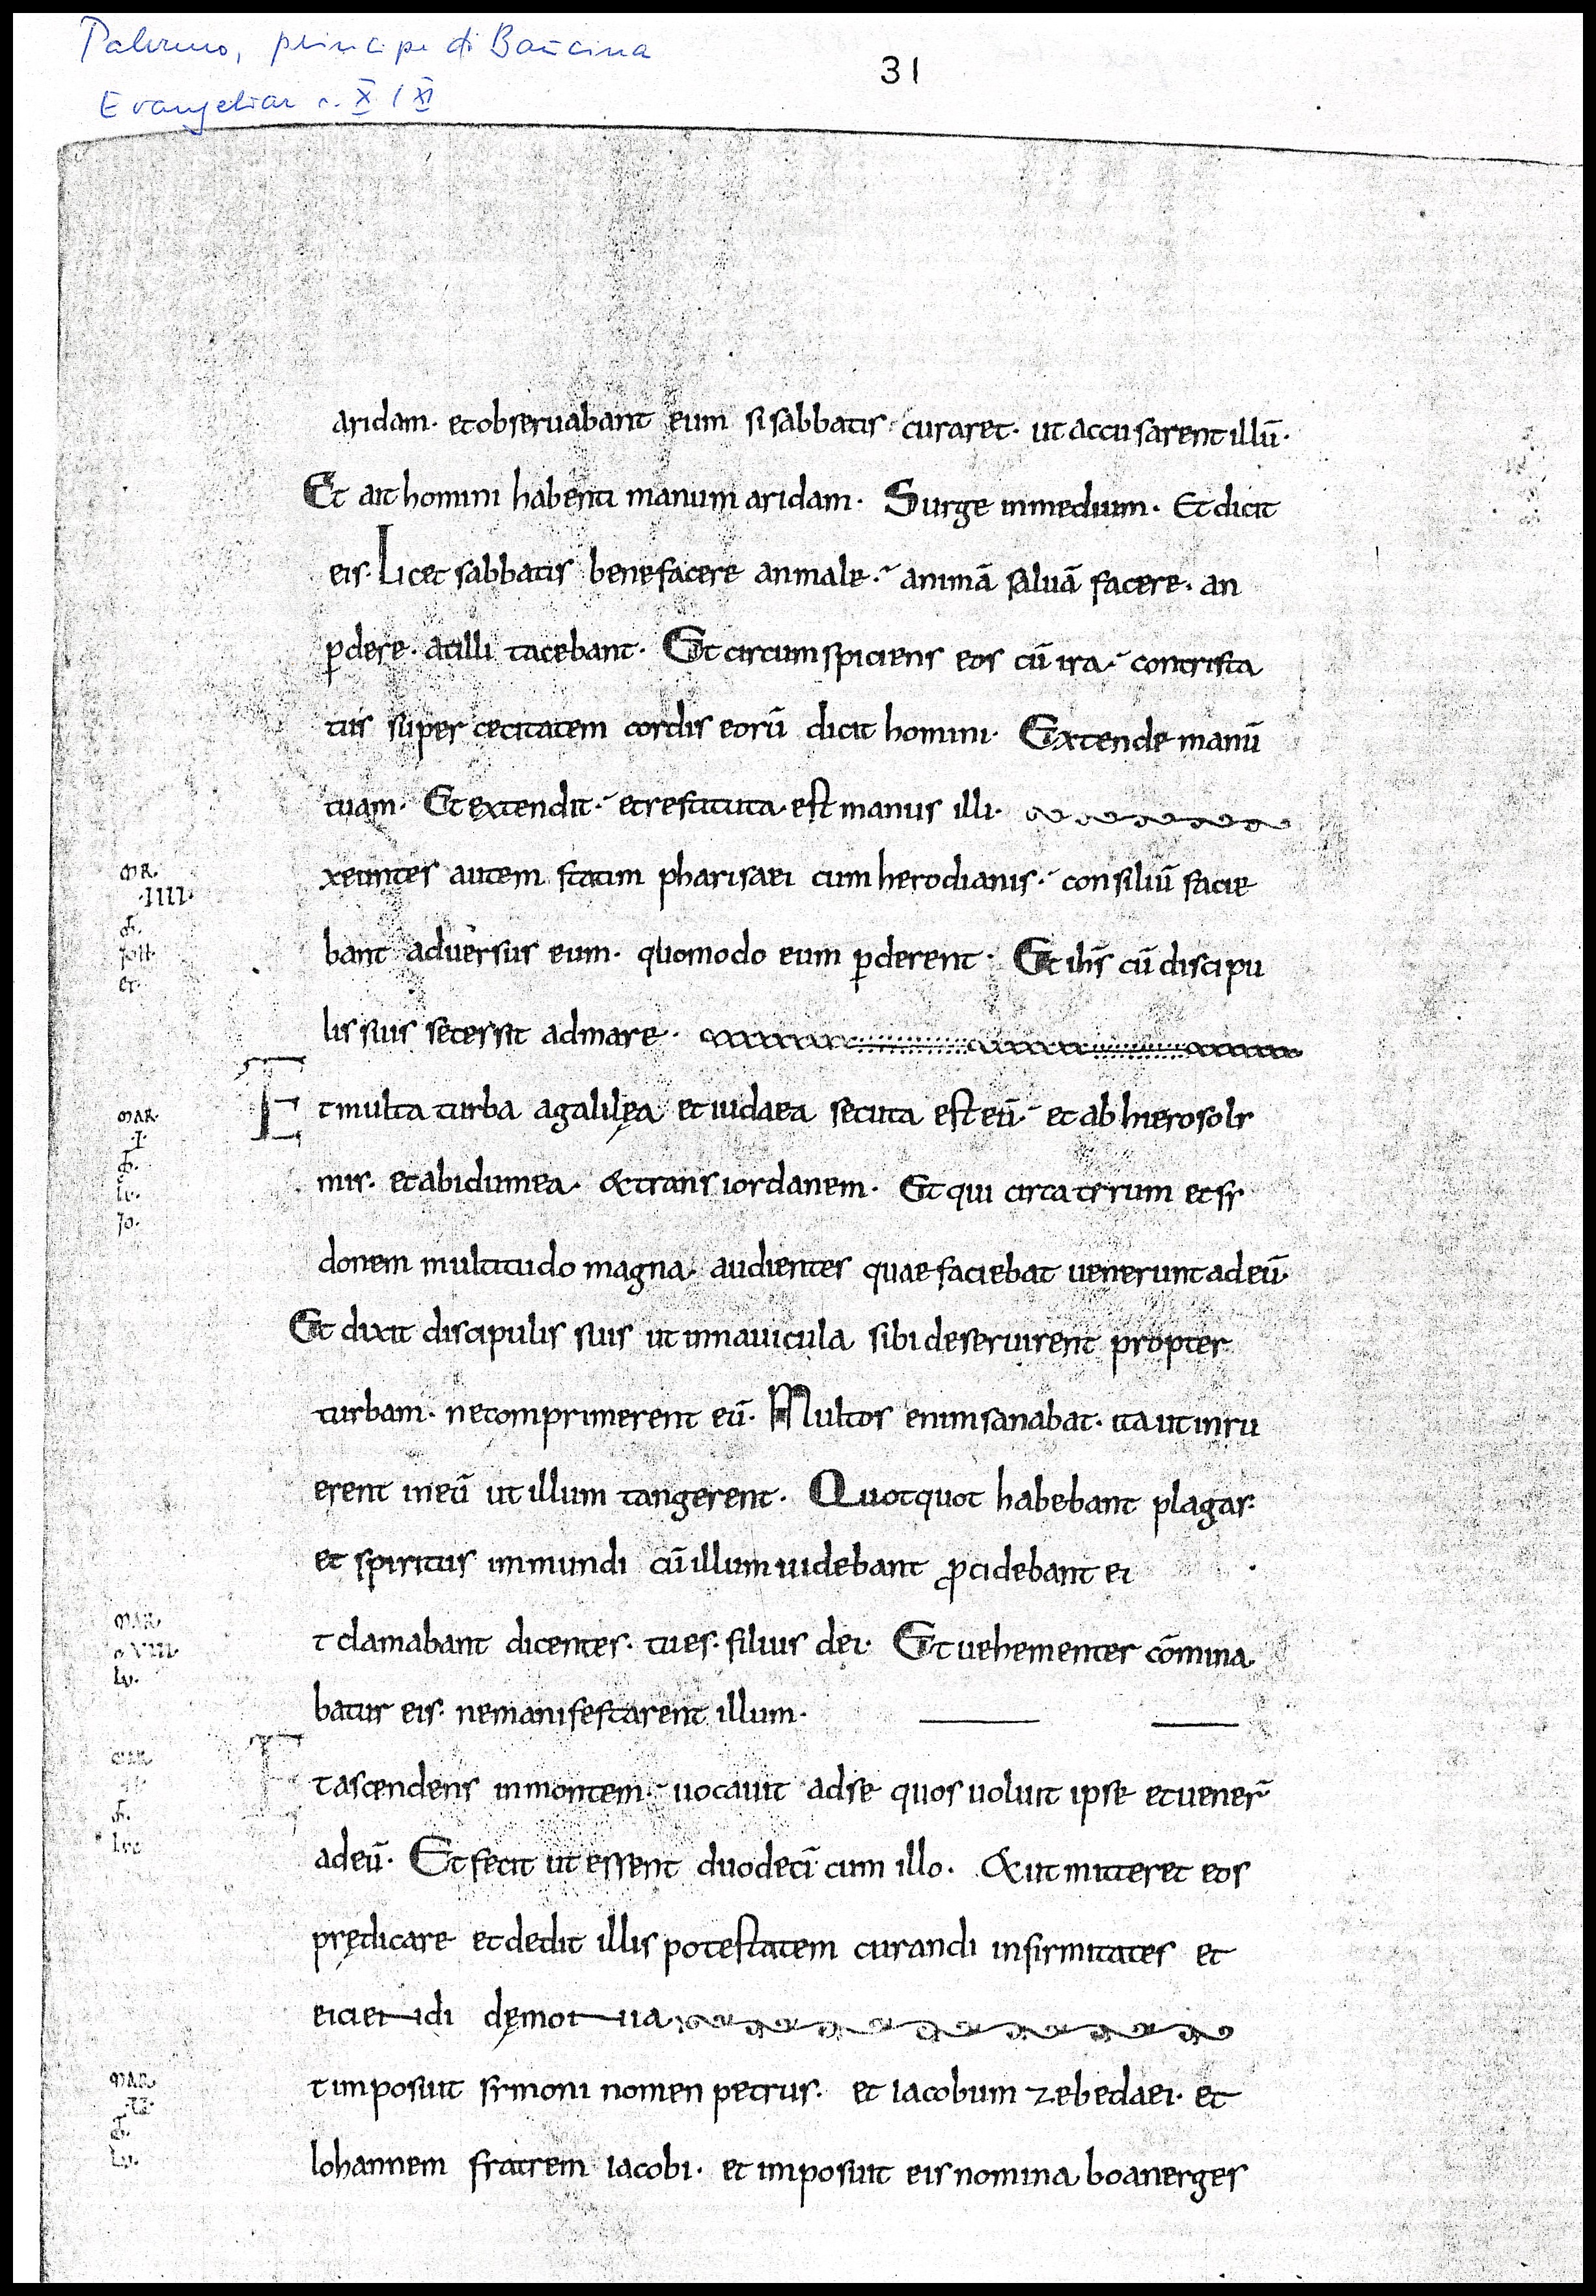 Palermo, principe di Baucina
31
Evangeliar s. X / XI
aridam· et observabant eum si sabbatis· curaret· ut accusarent illū·
Et ait homini habenti manum aridam· Surge in medium· Et dicit
eis· Licet sabbatis bene facere an male· animā saluā facere· an
ꝑdere· at illi tacebant· Et circumspiciens eos cū ira· contrista
tus super cecitatem cordis eorū dicit homini· Extende manū
tuam· Et extendit· et restituta est manus illi·
MR·
·IIII·
xeuntes autem statim pharisaei cum herodianis· consiliū facie
bant aduersus eum· quomodo eum ꝑderent· Et ihs̄ cū discipu
lis suis secessit ad mare·
MAR·
·I·
lu·
Io·
Et multa turba a galilęa et iudaea secuta est eū· et ab hierosoly
mis· et ab idumea· & trans iordanem· Et qui circa tyrum et sy
donem multitudo magna· audientes quae faciebat uenerunt ad eū·
Et dixit discipulis suis ut in nauicula sibi deseruirent propter
turbam· ne comprimerent eū· Multos enim sanabat· ita ut inru
erent in eū ut illum tangerent· Quotquot habebant plagas·
et spiritus immundi cū illum uidebant ꝓcidebant ei
MAR·
VIII·
lu·
t clamabant dicentes· tu es· filius dei· Et uehementer cōmina
batur eis· ne manifestarent illum·
Et ascendens in montem· uocauit ad se quos uoluit ipse et uener̄
ad eū· Et fecit ut essent duodecī cum illo· & ut mitteret eos
prędicare et dedit illis potestatem curandi infirmitates et
eiciendi dęmonia
MAR·
lu·
t imposuit symoni nomen petrus· et iacobum zebedaei· et
Iohannem fratrem iacobi· et imposuit eis nomina boanerges